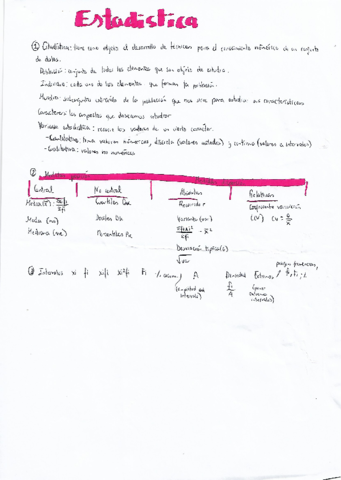 Estadística
① Estadística: tiene como objetivo el desarrollo de técnicas para el conocimiento numérico de un conjunto
de datos.
Población: conjunto de todos los elementos que son objeto de estudio.
Individuo: cada uno de los elementos que forman la población.
Muestra: subconjunto extraído de la población que nos sirve para estudiar sus características
Caracteres: los aspectos que deseamos estudiar
Variable estadística: recorre los valores de un cierto carácter.
- Cuantitativa: toma valores numéricos, discreta (valores aislados) y continua (valores a intervalos)
- Cualitativa: valores no numéricos
②
Central No central Absolutas Relativas
Media (x̄): Σxifi/Σfi Cuartiles Qk Recorrido r Coeficiente variación
Moda (mo) Deciles Dk Varianza (var) (CV) CV = σ/x̄
Mediana (me) Percentiles Pk Σfixi²/Σfi - x̄²
Desviación típica (s)
√var
③ Intervalos xi fi xifi xi²fi Fi % acum. Ai Densidad Extremos
(amplitud del intervalo) fi/A